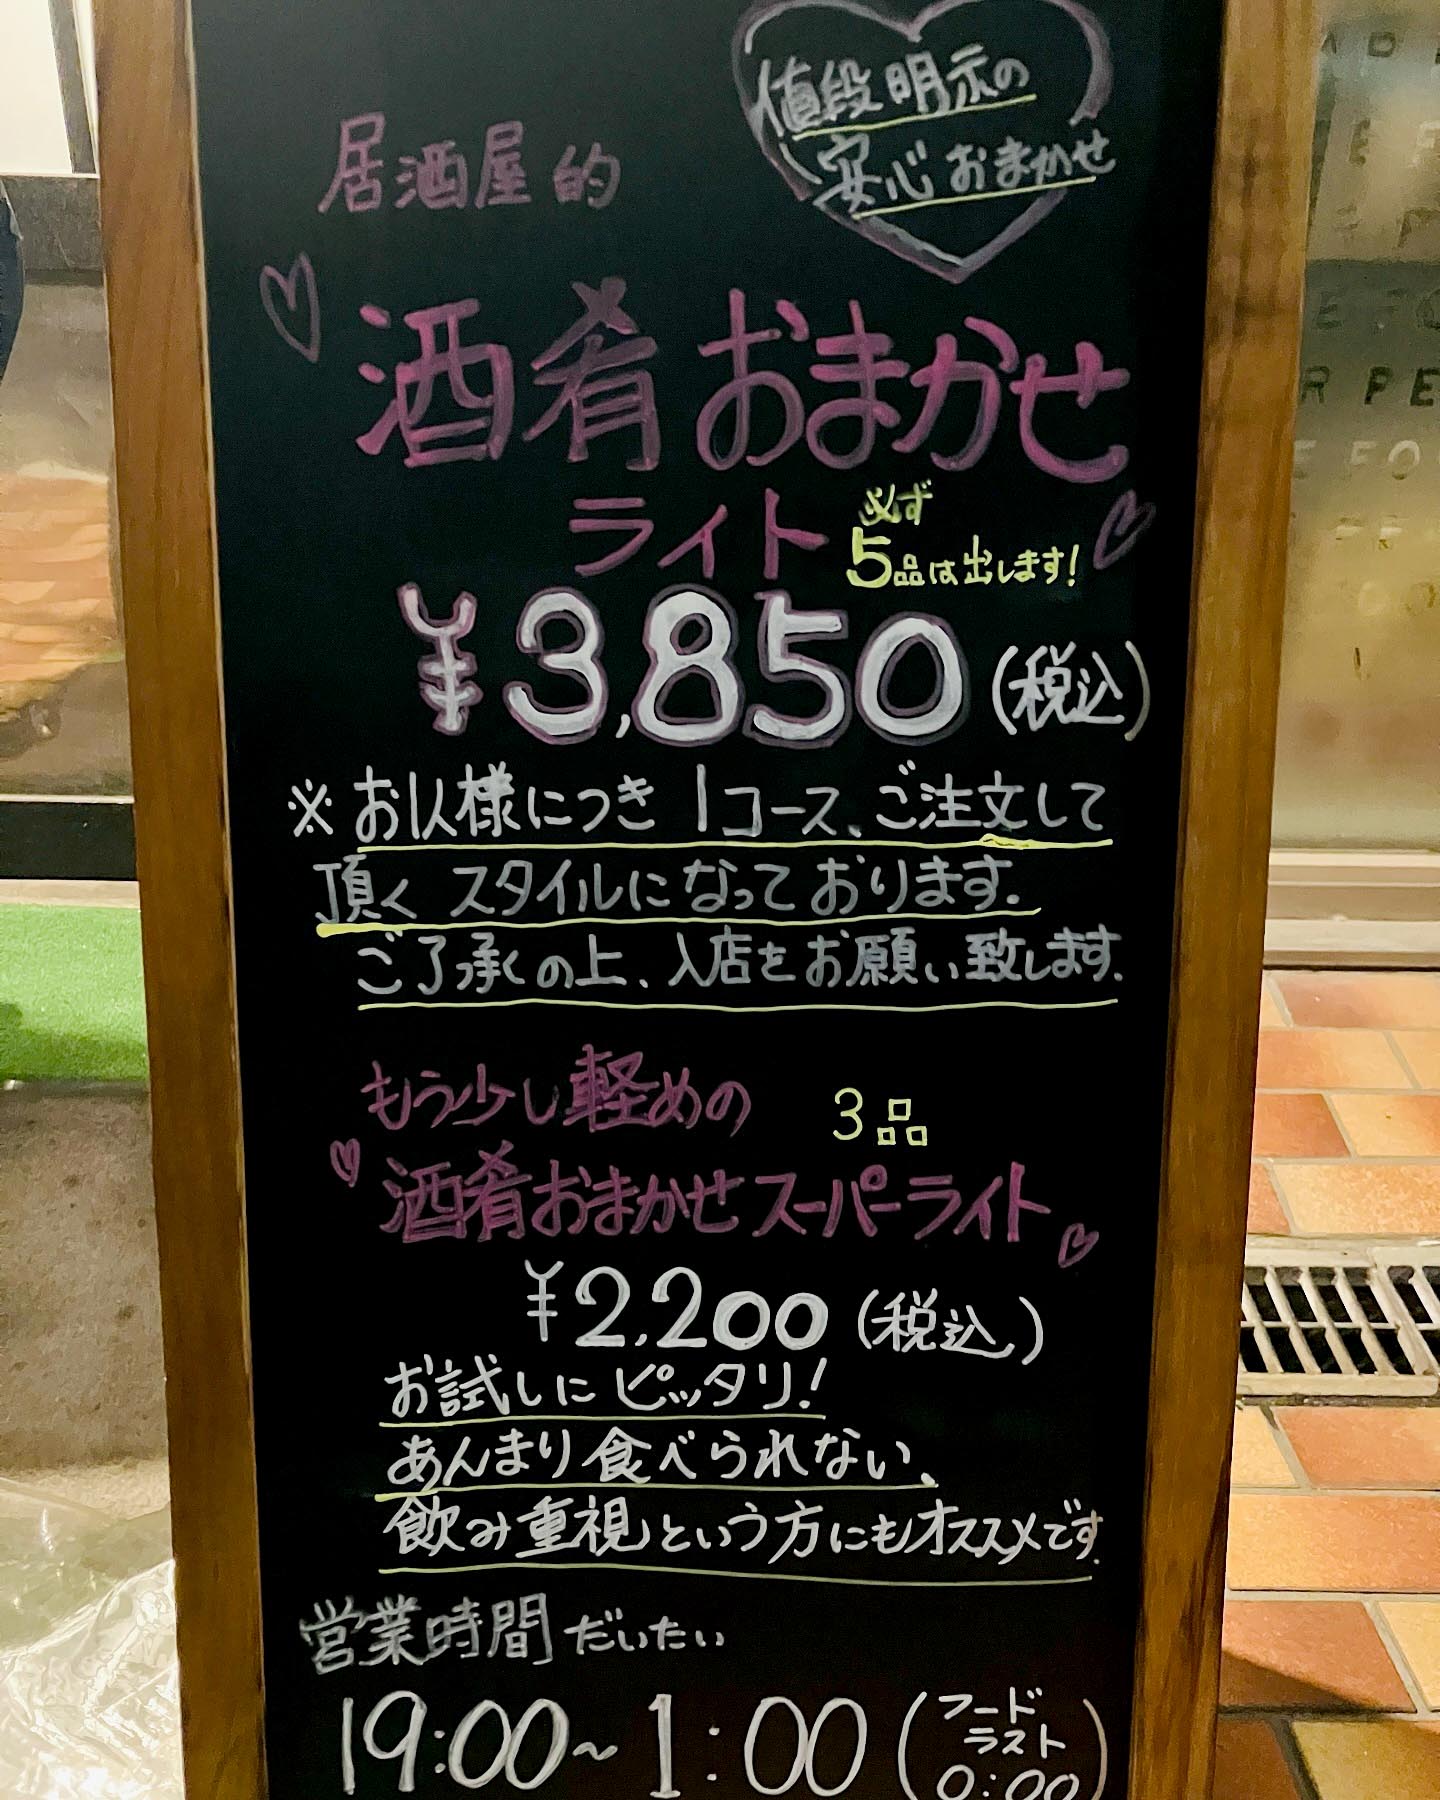 値段明示の
安心おまかせ
居酒屋的
酒肴おまかせ
ライト
必ず
5品は出します!
¥3,850(税込)
※お1人様につき 1コース、ご注文して
頂く スタイルになっております.
ご了承くの上、入店をお願い致します.
もう少し軽めの
3品
酒肴おまかせスーパーライト
¥2,200(税込)
お試しにピッタリ!
あんまり食べられない、
飲み重視という方にもオススメです.
営業時間 だいたい
19:00~1:00
(フード
ラスト
0:00)